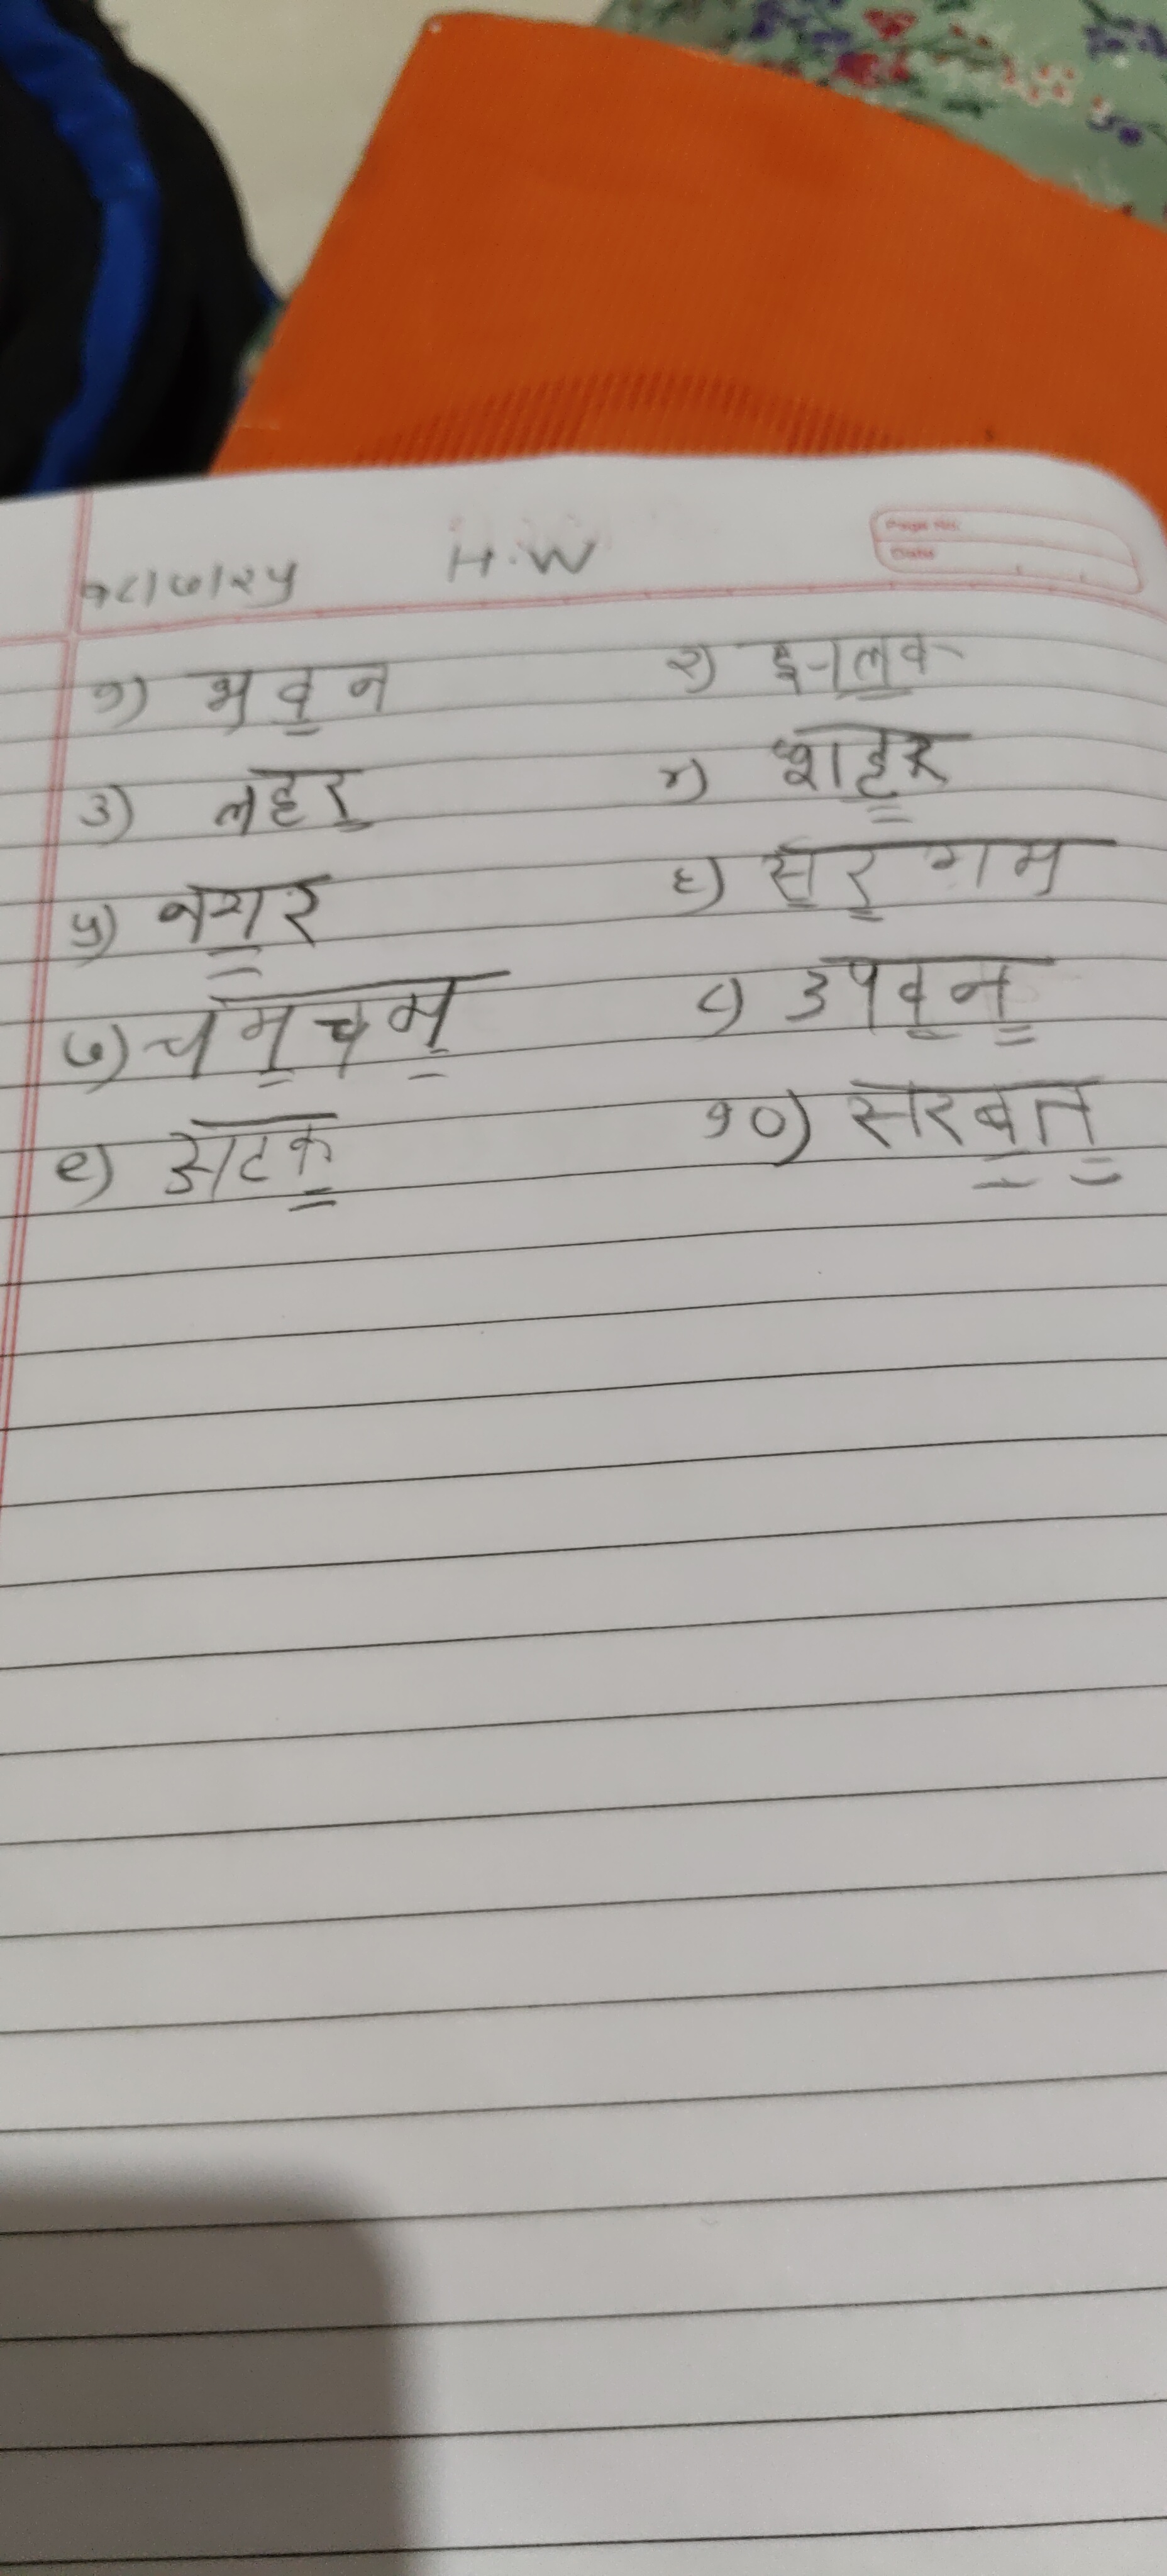 H.W
Page No.
Date
१८/७/२५
१) भवन २) झलक
३) लहर ४) शहर
५) नगर ६) सरगम
७) चमचम ८) उपवन
९) अटक १०) सरबत